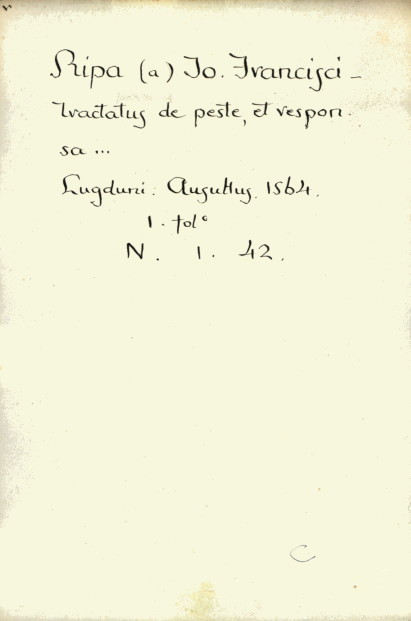 Ripa (a) Jo. Francisci -
tractatus de peste, et respon.
sa ...
Lugduni. Augustus. 1564.
1. folº
N. 1. 42.
C